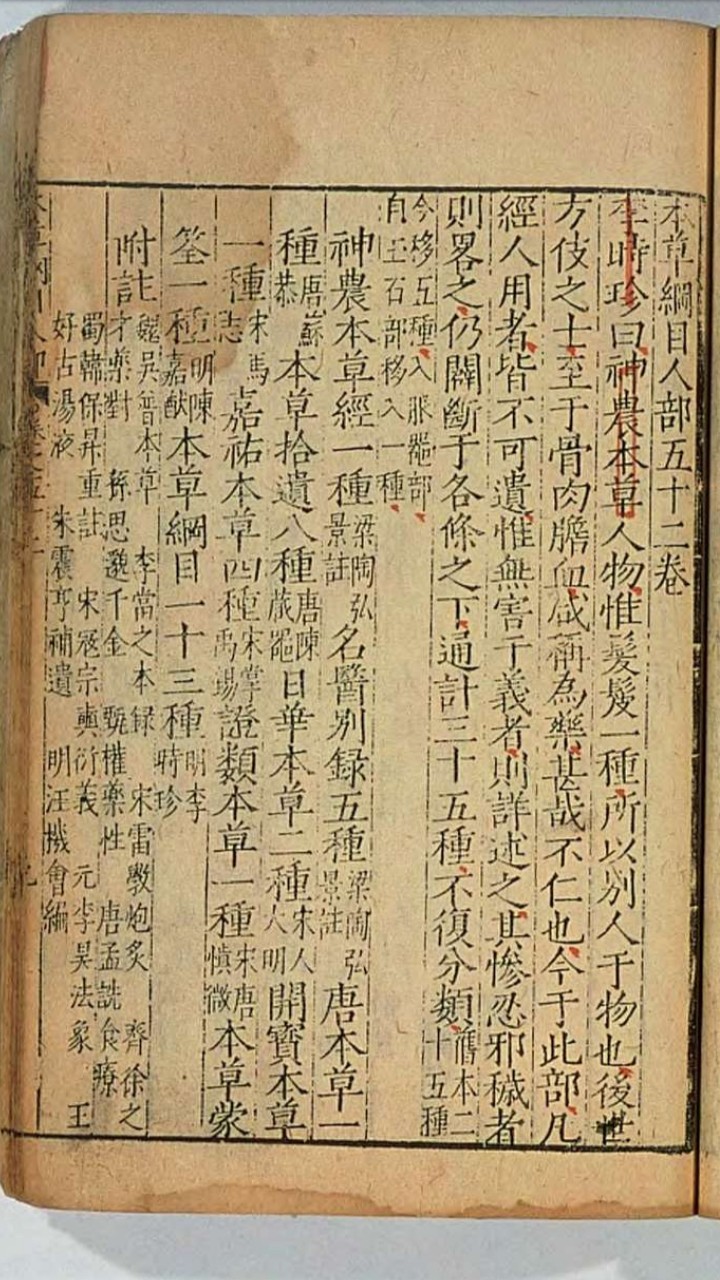 本草綱目人部五十二卷
李時珍曰神農本草人物惟髮髲一種所以別人于物也後世
方伎之士至于骨肉膽血咸稱為藥甚哉不仁也今于此部凡
經人用者皆不可遺惟無害于義者則詳述之其慘忍邪穢者
則畧之仍闢斷于各條之下通計三十五種不復分類舊本二十五種
今移五種入服器部自玉石部移入一種
神農本草經一種梁陶弘景註名醫別録五種梁陶弘景註唐本草一
種唐蘇恭本草拾遺八種唐陳藏器日華本草二種宋人大明開寶本草
一種宋馬志嘉祐本草四種宋掌禹錫證類本草一種宋唐慎微本草蒙
筌一種明陳嘉猷本草綱目一十三種明李時珍
附註魏吳普本草 李當之本録 宋雷斆炮炙 齊徐之
才藥對 孫思邈千金 甄權藥性 唐孟詵食療
蜀韓保昇重註 宋寇宗奭衍義 元李吴法象 王
好古湯液 朱震亨補遺 明汪機會編